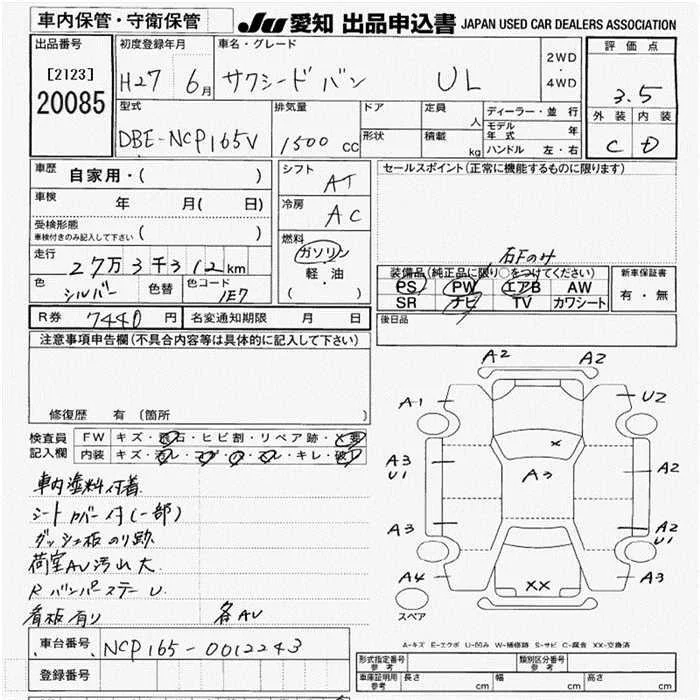 車内保管・守衛保管
JU 愛知 出品申込書 JAPAN USED CAR DEALERS ASSOCIATION
出品番号
[2123]
20085
初度登録年月
H27 6月
車名・グレード
サクシードバン UL
2WD
・
4WD
評価点
3.5
外装 内装
C D
型式
DBE-NCP165V
排気量
1500 CC
ドア
形状
定員
人
積載
kg
ディーラー・並行
モデル年式 年
ハンドル 左・右
車歴
自家用・( )
車検
年 月( 日)
受検形態
車検付きのみ記入して下さい ( )
走行
27万3千312km
色
シルバー
色替
色コード
1E7
シフト
AT
冷房
AC
燃料
ガソリン
軽・油
( )
セールスポイント(正常に機能するものに限ります)
右Fのみ
装備品(純正品に限り○をつけてください)
PS PW エアB AW
SR ナビ TV カワシート
新車保証書
有・無
R券 7440 円
名変通知期限 月 日
後日品
注意事項申告欄(不具合内容等は具体的に記入して下さい)
修復歴 有(箇所 )
検査員
記入欄
FW キズ・飛石・ヒビ割・リペア跡・X要
内装 キズ・汚レ・コゲ・穴・スレ・キレ・破レ
車内塗料付着
シートカバー付(一部)
ダッシュ板のり跡
荷室AU汚山大
RバンパーステーU
看板有り 各AU
車台番号 NCP165-0012243
登録番号
A2 A2
A1 U2
×
A3 U1
A3
A2
A3
A2 U1
A4 XX A3
スペア
A-キズ E-エクボ U-凹み W-補修跡 S-サビ C-腐食 XX-交換済
形式指定番号 参考
類別区分番号 参考
車庫証明用 参考 長さ cm 幅 cm 高さ cm